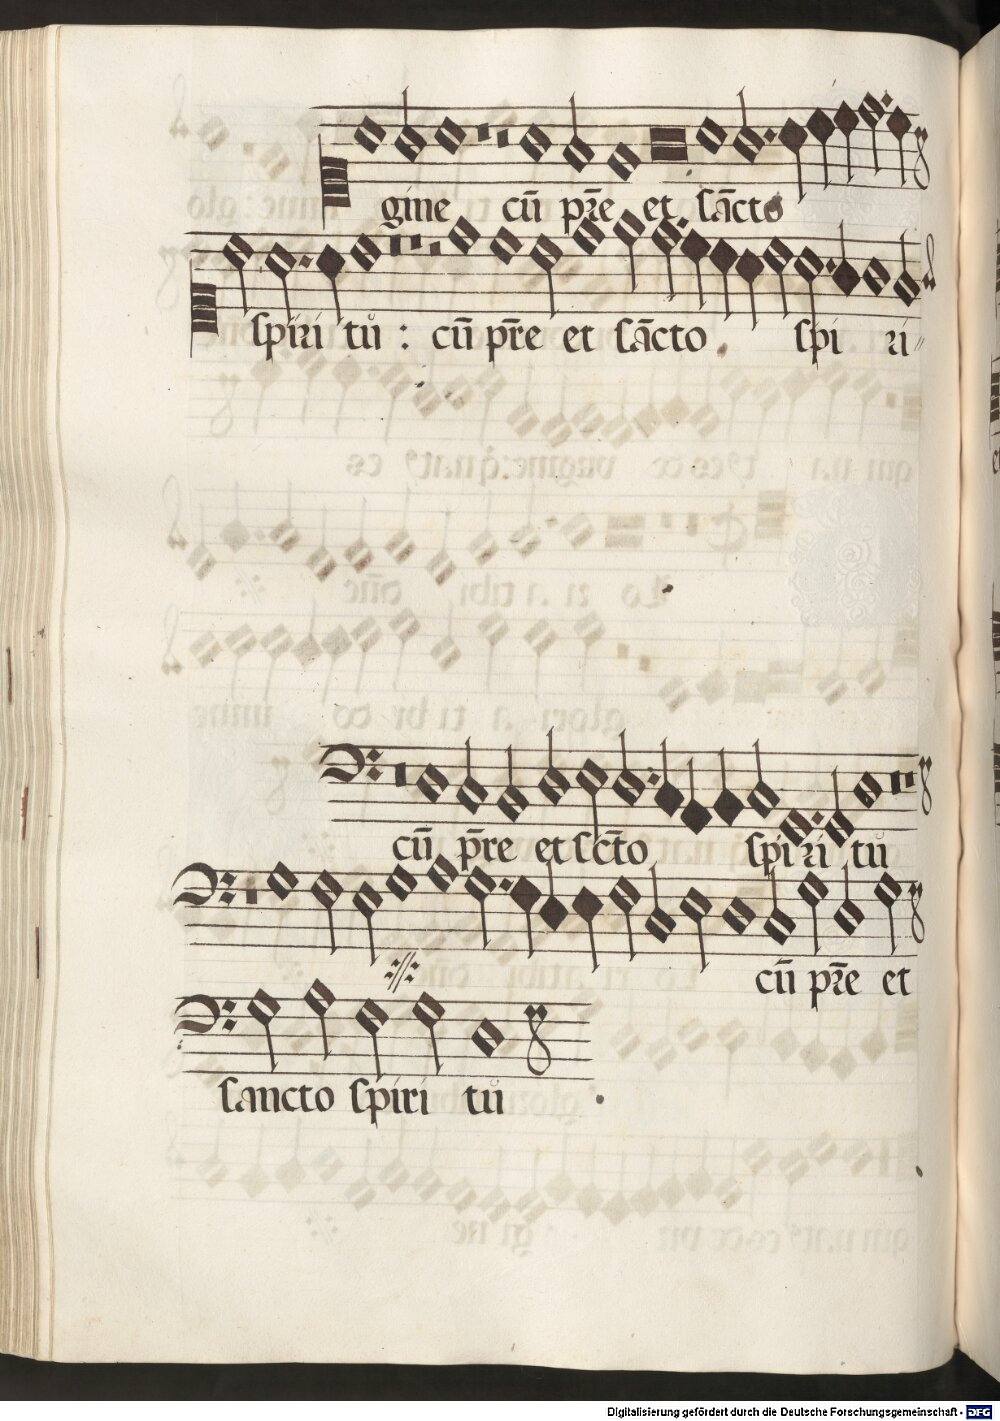 gine cū pr̄e et sāctо
spiri tů : cū pr̄e et sācto . spi ri〃
cū pr̄e et sct̄o spi ri tů
cū pr̄e et
sancto spiri tů .
Digitalisierung gefördert durch die Deutsche Forschungsgemeinschaft - DFG